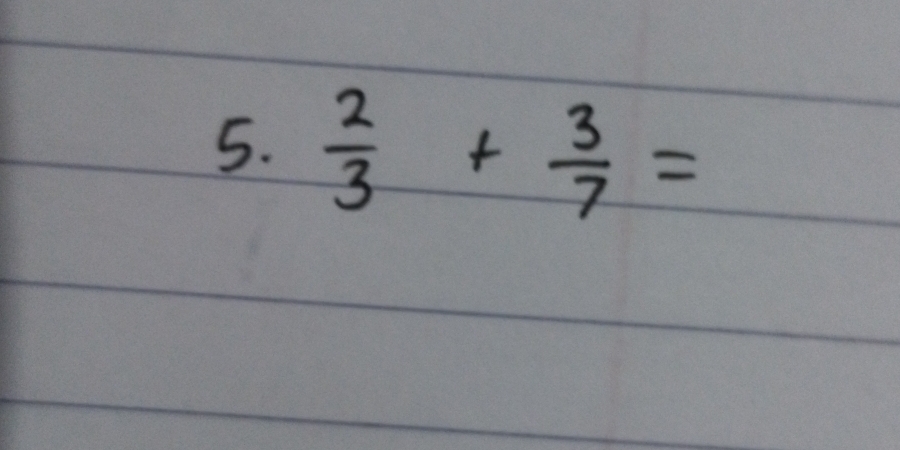 5. 2/3 + 3/7 =